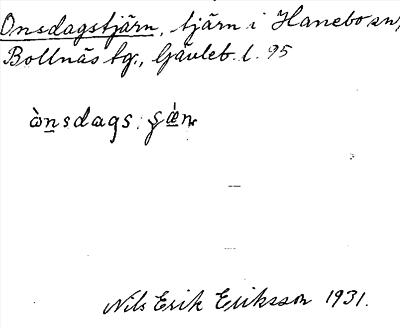 Onsdagstjärn, tjärn i Hanebo sn,
Bollnäs tg., Gävleb. l. 95
ò̀nsdags
Nils Erik Eriksson 1931.